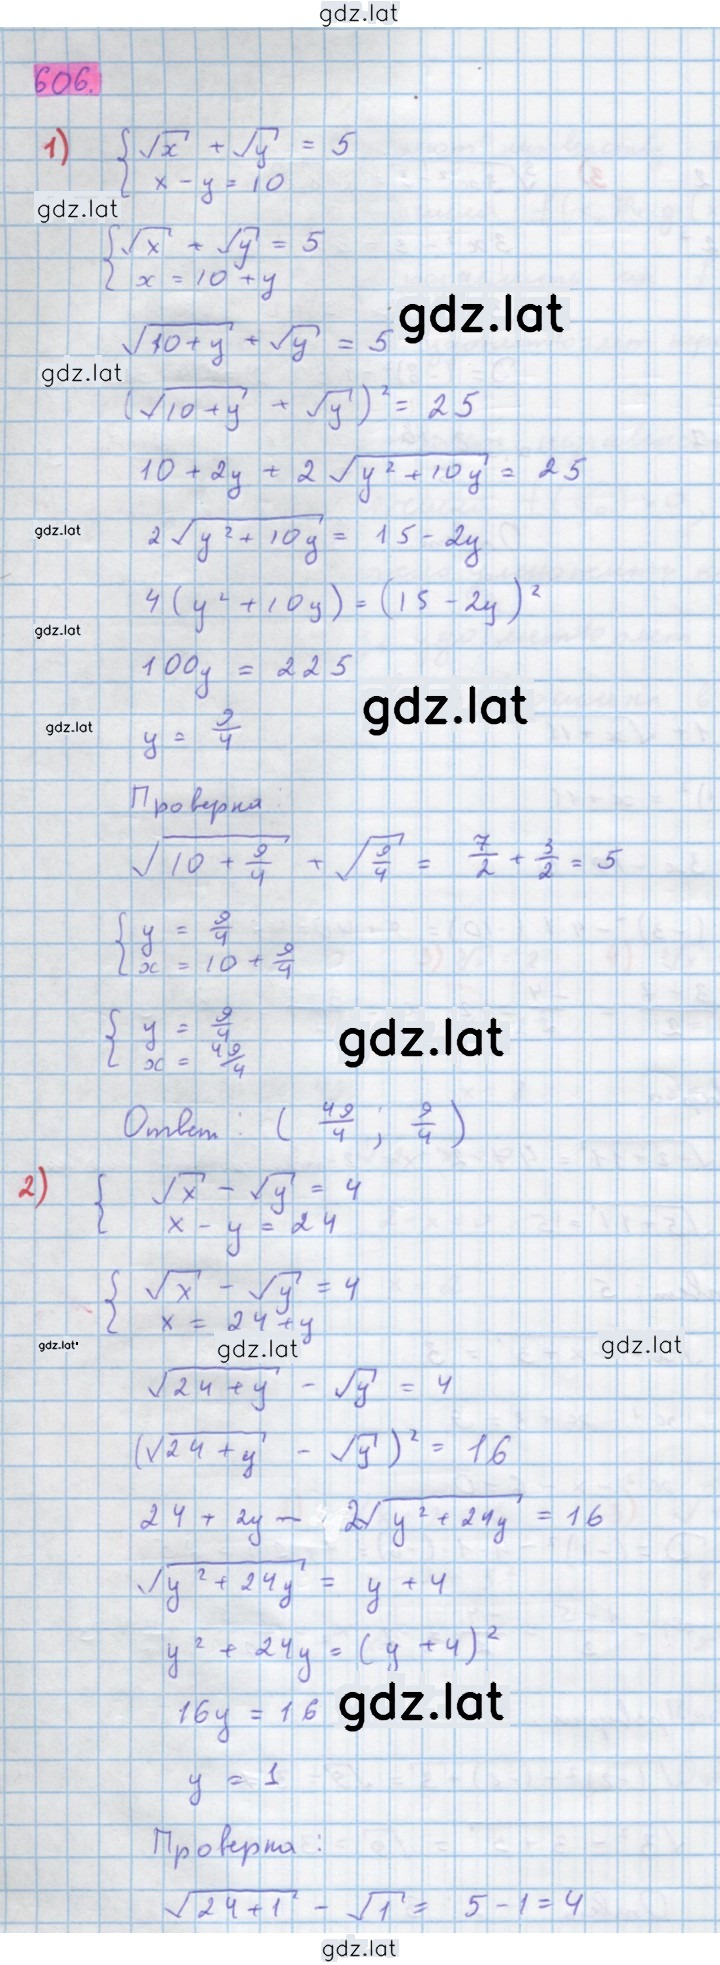 gdz.lat
606.
1) { √x + √y = 5
x - y = 10
gdz.lat
{ √x + √y = 5
x = 10 + y
gdz.lat
√(10 + y) + √y = 5
gdz.lat
(√(10 + y) + √y)² = 25
10 + 2y + 2√(y² + 10y) = 25
gdz.lat
2√(y² + 10y) = 15 - 2y
4(y² + 10y) = (15 - 2y)²
gdz.lat
100y = 225
gdz.lat
gdz.lat
y = 9/4
Проверка:
√(10 + 9/4) + √(9/4) = 7/2 + 3/2 = 5
{ y = 9/4
x = 10 + 9/4
{ y = 9/4
x = 49/4
gdz.lat
Ответ: (49/4 ; 9/4)
2) { √x - √y = 4
x - y = 24
{ √x - √y = 4
x = 24 + y
gdz.lat
gdz.lat
gdz.lat
√(24 + y) - √y = 4
(√(24 + y) - √y)² = 16
24 + 2y - 2√(y² + 24y) = 16
√(y² + 24y) = y + 4
y² + 24y = (y + 4)²
16y = 16
gdz.lat
y = 1
Проверка:
√(24 + 1) - √1 = 5 - 1 = 4
gdz.lat